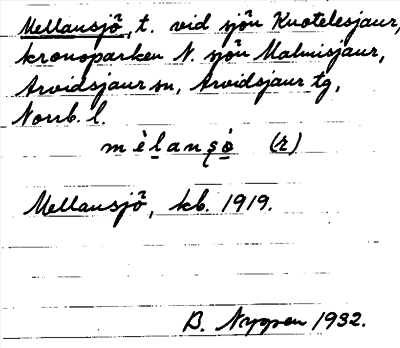 Mellansjö, t. vid sjön Kuotelesjaur,
kronoparken N. sjön Malmisjaur,
Arvidsjaur sn, Arvidsjaur tg,
Norrb. l.
mèlanʂö̀ (r)
Mellansjö, kb. 1919.
B. Nygren 1932.